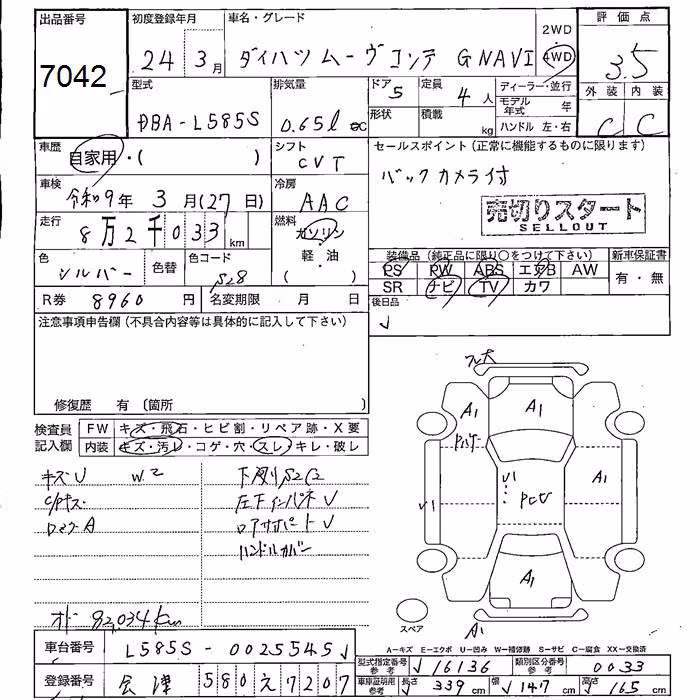 出品番号 初度登録年月 車名・グレード 2WD 評価点
7042 24 3月 ダイハツムーヴコンテ G NAVI 4WD 3.5
型式 排気量 ドア 5 定員 4人 ディーラー・並行 外装 内装
DBA-L585S 0.65ℓ cc 形状 積載 kg モデル年式 年 C C
ハンドル 左・右
車歴 自家用・( ) シフト CVT セールスポイント(正常に機能するものに限ります)
車検 令和9年 3月(27日) 冷房 AAC バックカメラ付
売切りスタート
SELLOUT
走行 8万2千033km 燃料 ガソリン 軽・油 ( )
色 シルバー 色替 色コード S28
装備品(純正品に限り○をつけて下さい) 新車保証書
PS PW ABS エアB AW 有・無
SR ナビ TV カワ
R券 8960円 名変期限 月 日 後日品
注意事項申告欄(不具合内容等は具体的に記入して下さい)
修復歴 有(箇所 )
検査員記入欄 FW キズ・飛石・ヒビ割・リペア跡・X要
内装 キズ・汚レ・コゲ・穴・スレ・キレ・破レ
キズU W2 下廻りS2C2
C/Pキズ 左下インパネU
ロアサポートU
ハンドルカバー
オド 82,034km
A1 A1
U1 U1 A1
A1
A1
スペア
A-キズ E-エクボ U-凹み W-補修跡 S-サビ C-腐食 XX-交換済
車台番号 L585S-0025545
型式指定番号 参考 16136 類別区分番号 参考 0033
登録番号 会津 580 え 7207
車庫証明用 参考 長さ 339cm 幅 147cm 高さ 165cm